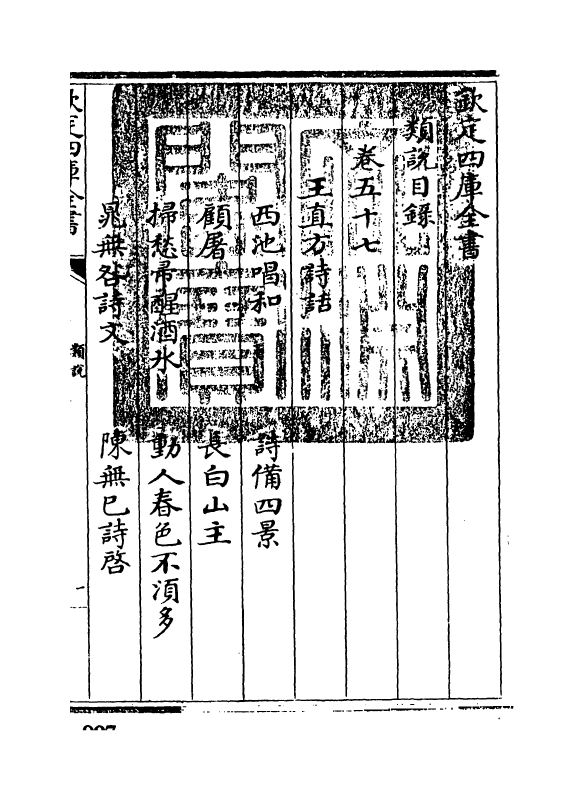 欽定四庫全書
類說目録
卷五十七
王直方詩話
西池唱和
詩備四景
顧屠
長白山主
掃愁帚醒酒氷
動人春色不湏多
晁無咎詩文
陳無已詩啓
欽定四庫全書
類說